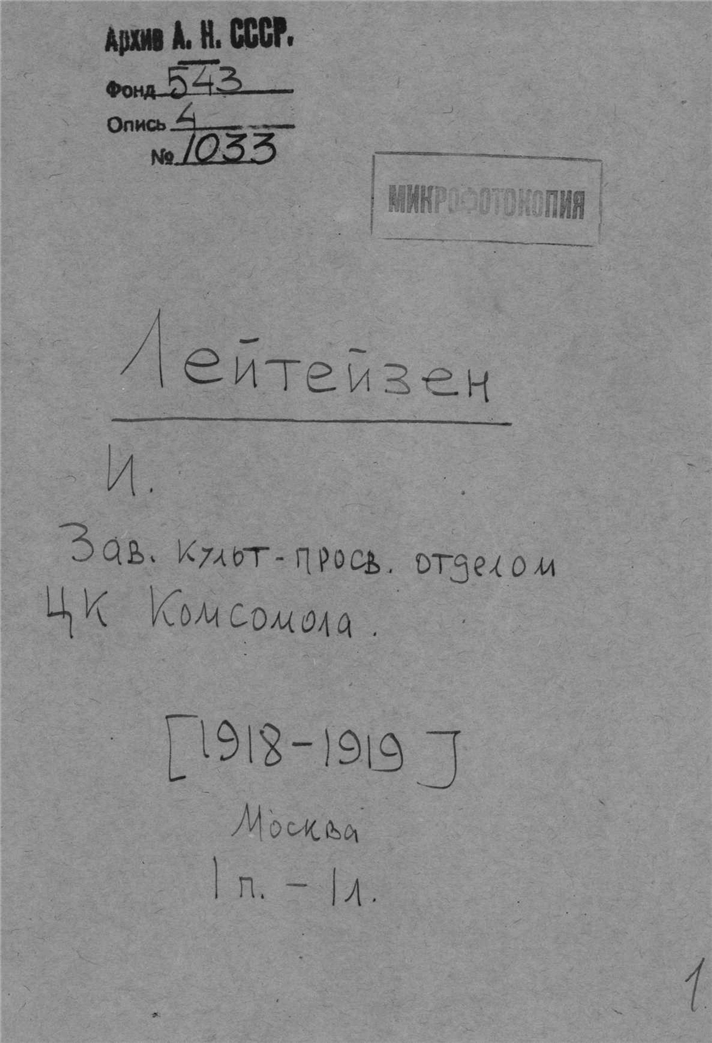 Архив А. Н. СССР.
Фонд 543
Опись 4
№ 1033
МИКРОФОТОКОПИЯ
Лейтейзен
И.
Зав. культ-просв. отделом
ЦК Комсомола.
[1918-1919]
Москва
1 п. - 1 л.
1